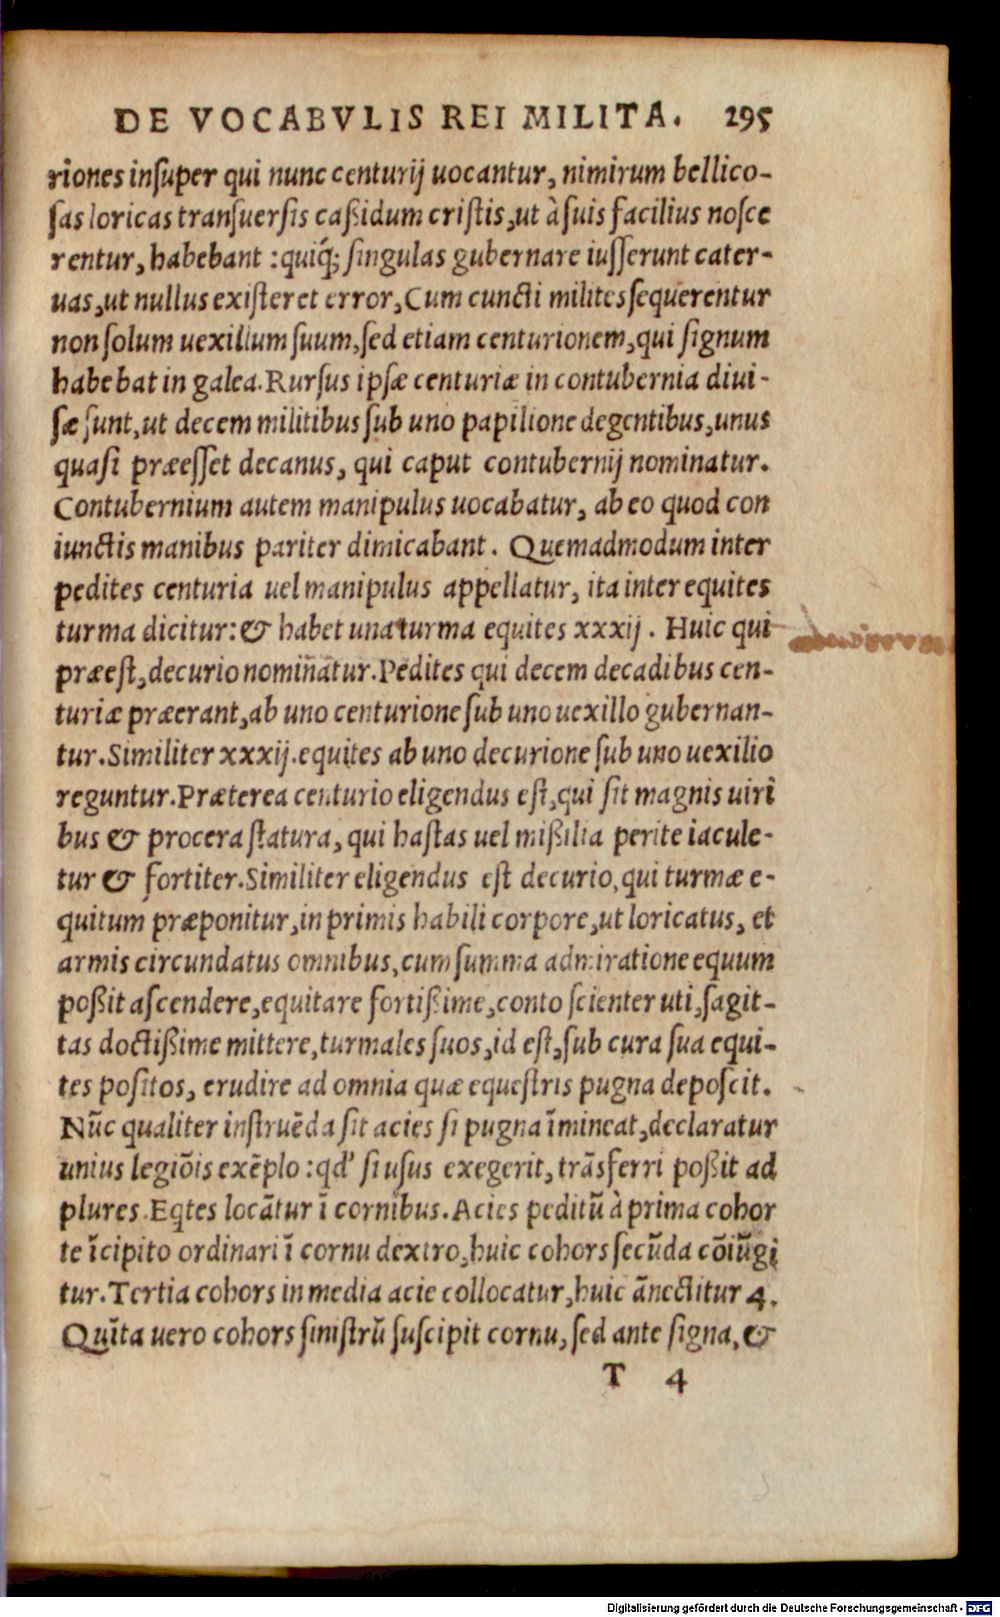 DE VOCABVLIS REI MILITA. 295
riones insuper qui nunc centurij uocantur, nimirum bellico-
sas loricas transuersis caßidum cristis, ut à suis facilius nosce
rentur, habebant : quiq́; singulas gubernare iusserunt cater-
uas, ut nullus existeret error, Cum cuncti milites sequerentur
non solum uexillum suum, sed etiam centurionem, qui signum
habebat in galea. Rursus ipsæ centuriæ in contubernia diui-
sæ sunt, ut decem militibus sub uno papilione degentibus, unus
quasi præesset decanus, qui caput contubernij nominatur.
Contubernium autem manipulus uocabatur, ab eo quod con
iunctis manibus pariter dimicabant. Quemadmodum inter
pedites centuria uel manipulus appellatur, ita inter equites
turma dicitur: & habet una turma equites xxxij. Huic qui
præest, decurio nominatur. Pedites qui decem decadibus cen-
turiæ præerant, ab uno centurione sub uno uexillo gubernan-
tur. Similiter xxxij. equites ab uno decurione sub uno uexilio
reguntur. Præterea centurio eligendus est, qui sit magnis uiri
bus & procera statura, qui hastas uel mißilia perite iacule-
tur & fortiter. Similiter eligendus est decurio, qui turmæ e-
quitum præponitur, in primis habili corpore, ut loricatus, et
armis circundatus omnibus, cum summa admiratione equum
poßit ascendere, equitare fortißime, conto scienter uti, sagit-
tas doctißime mittere, turmales suos, id est, sub cura sua equi-
tes positos, erudire ad omnia quæ equestris pugna deposcit.
Nūc qualiter instruēda sit acies si pugna īmineat, declaratur
unius legiōis exēplo : qd' si usus exegerit, trāsferri poßit ad
plures. Eqtes locātur ī cornibus. Acies peditū à prima cohor
te īcipito ordinari ī cornu dextro, huic cohors secūda cōiūgi
tur. Tertia cohors in media acie collocatur, huic ānectitur 4.
Quīta uero cohors sinistrū suscipit cornu, sed ante signa, &
T 4
Digitalisierung gefördert durch die Deutsche Forschungsgemeinschaft - DFG